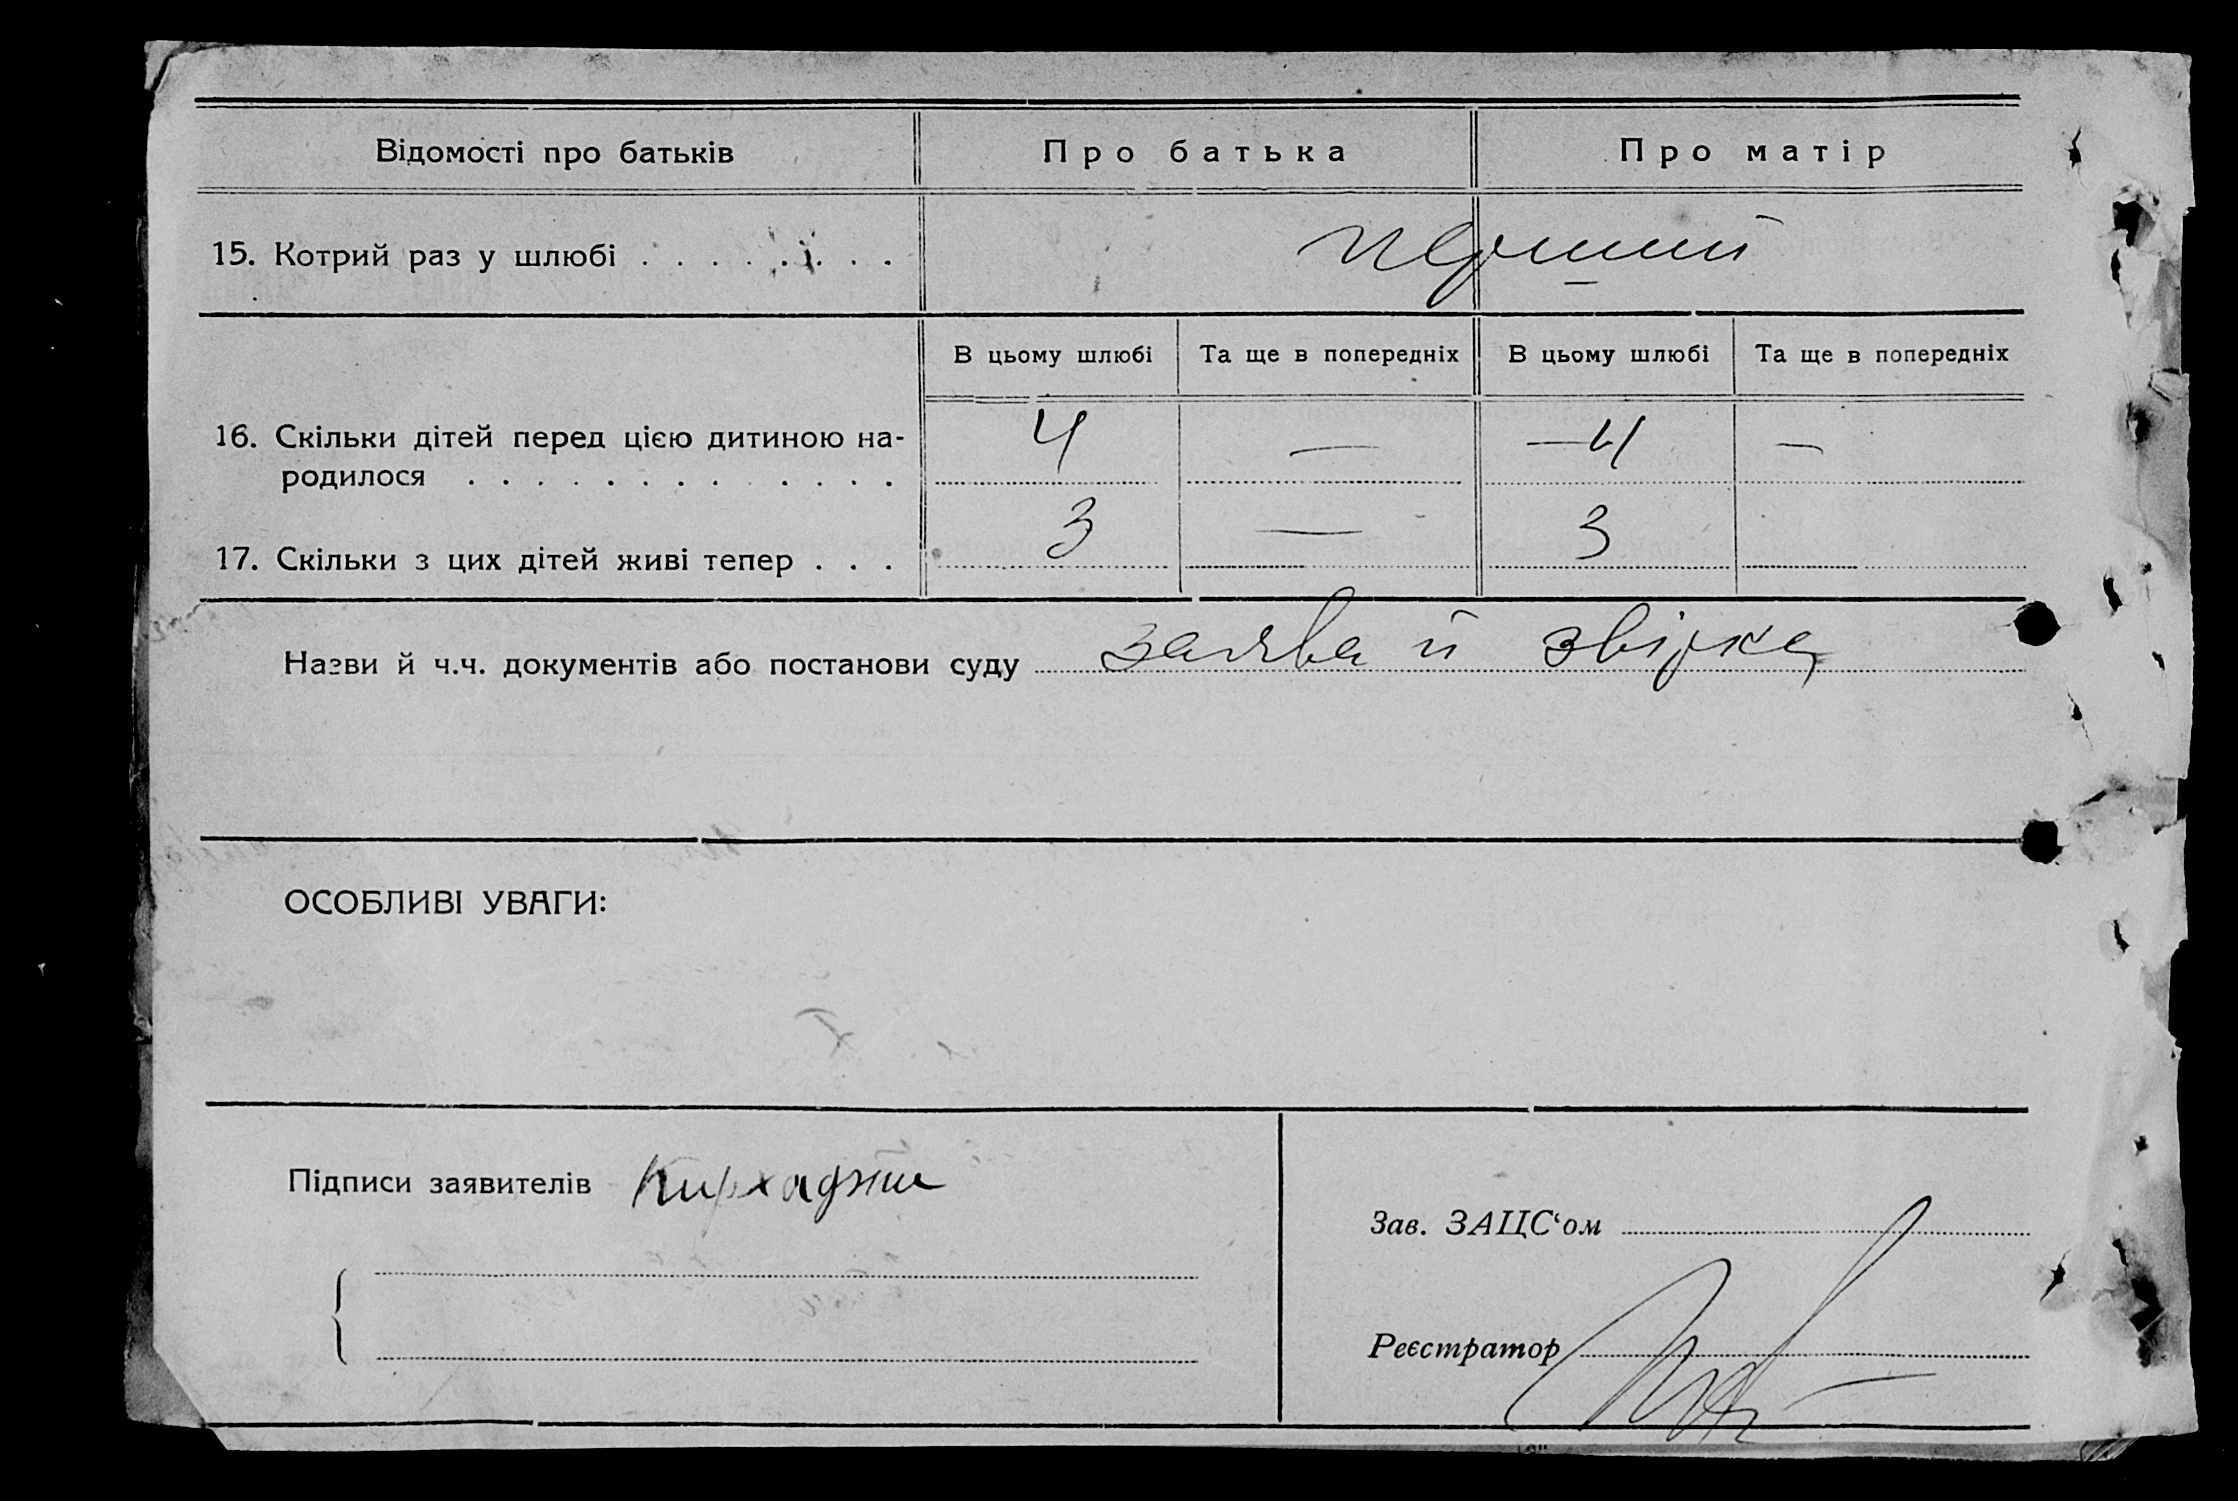 Відомості про батьків Про батька Про матір
15. Котрий раз у шлюбі . . . . . . . . перший
В цьому шлюбі Та ще в попередніх В цьому шлюбі Та ще в попередніх
16. Скільки дітей перед цією дитиною на- 4 — —4 —
родилося . . . . . . . . . . . . .
17. Скільки з цих дітей живі тепер . . . 3 — 3
Назви й ч.ч. документів або постанови суду заява й звірка
ОСОБЛИВІ УВАГИ:
Підписи заявителів Кирхаджи
Зав. ЗАЦС‘ом
Реєстратор